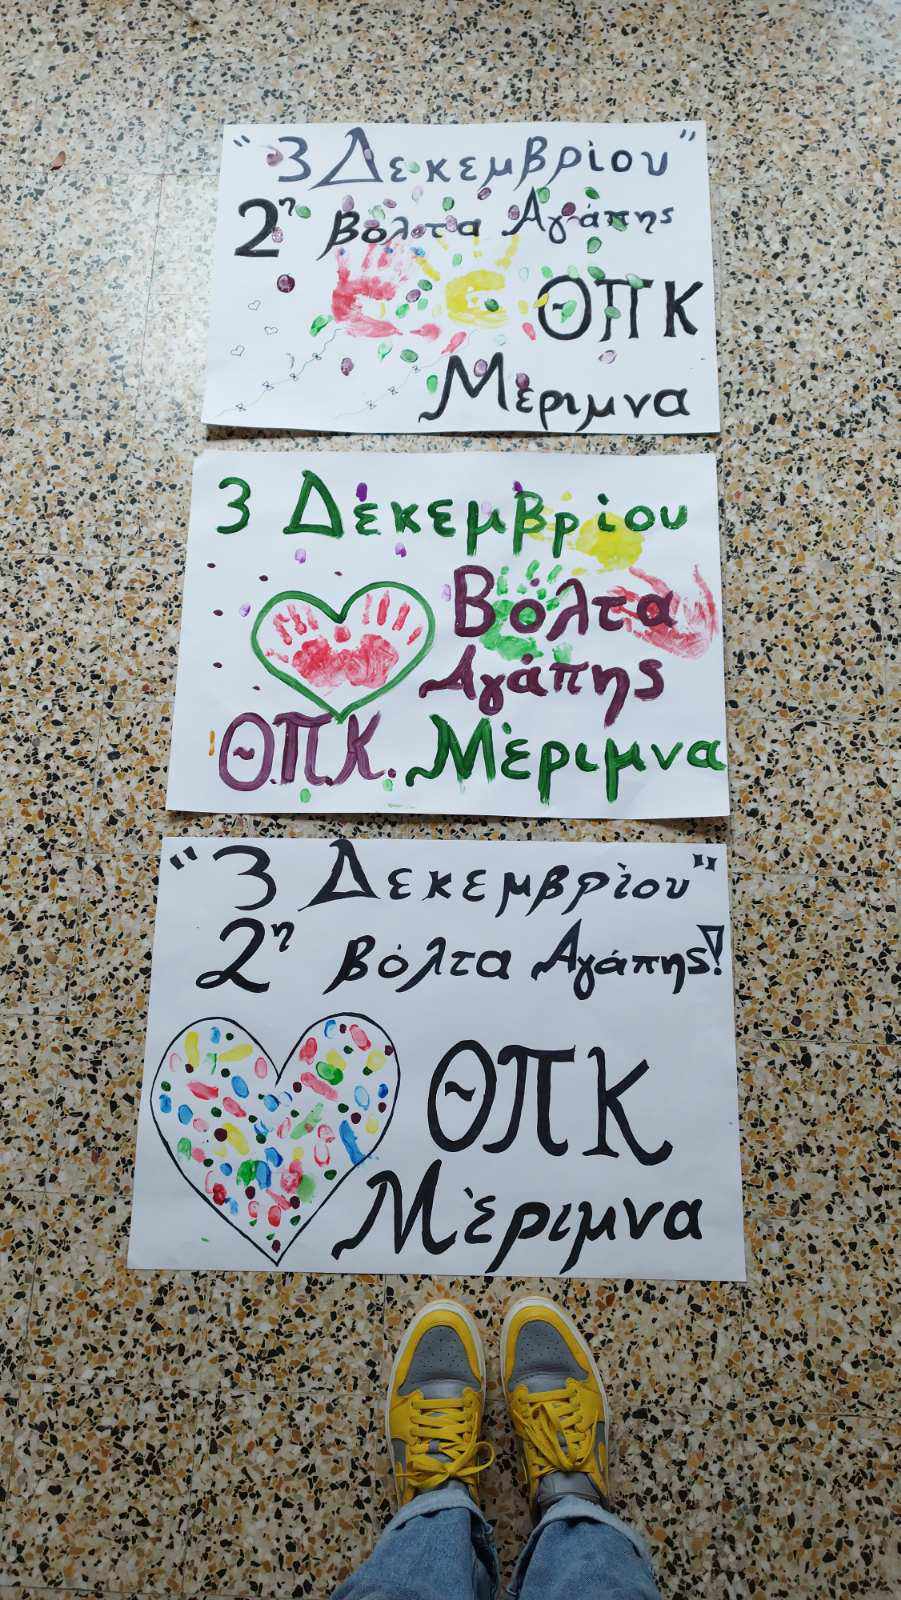 "3 Δεκεμβρίου"
2η βόλτα Αγάπης
ΘΠΚ
Μέριμνα
3 Δεκεμβρίου
Βόλτα
Αγάπης
Θ.Π.Κ. Μέριμνα
"3 Δεκεμβρίου"
2η βόλτα Αγάπης!
ΘΠΚ
Μέριμνα